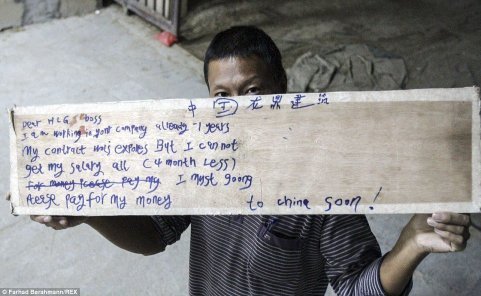 中国 龙鼎建筑
Dear HCG boss
I am working in your company already 1 years
My contract was expores But I can not
get my salary all (4 month Less)
For money please pay my I must going
Please pay for my money to china soon!
© Farhad Berahmann/REX